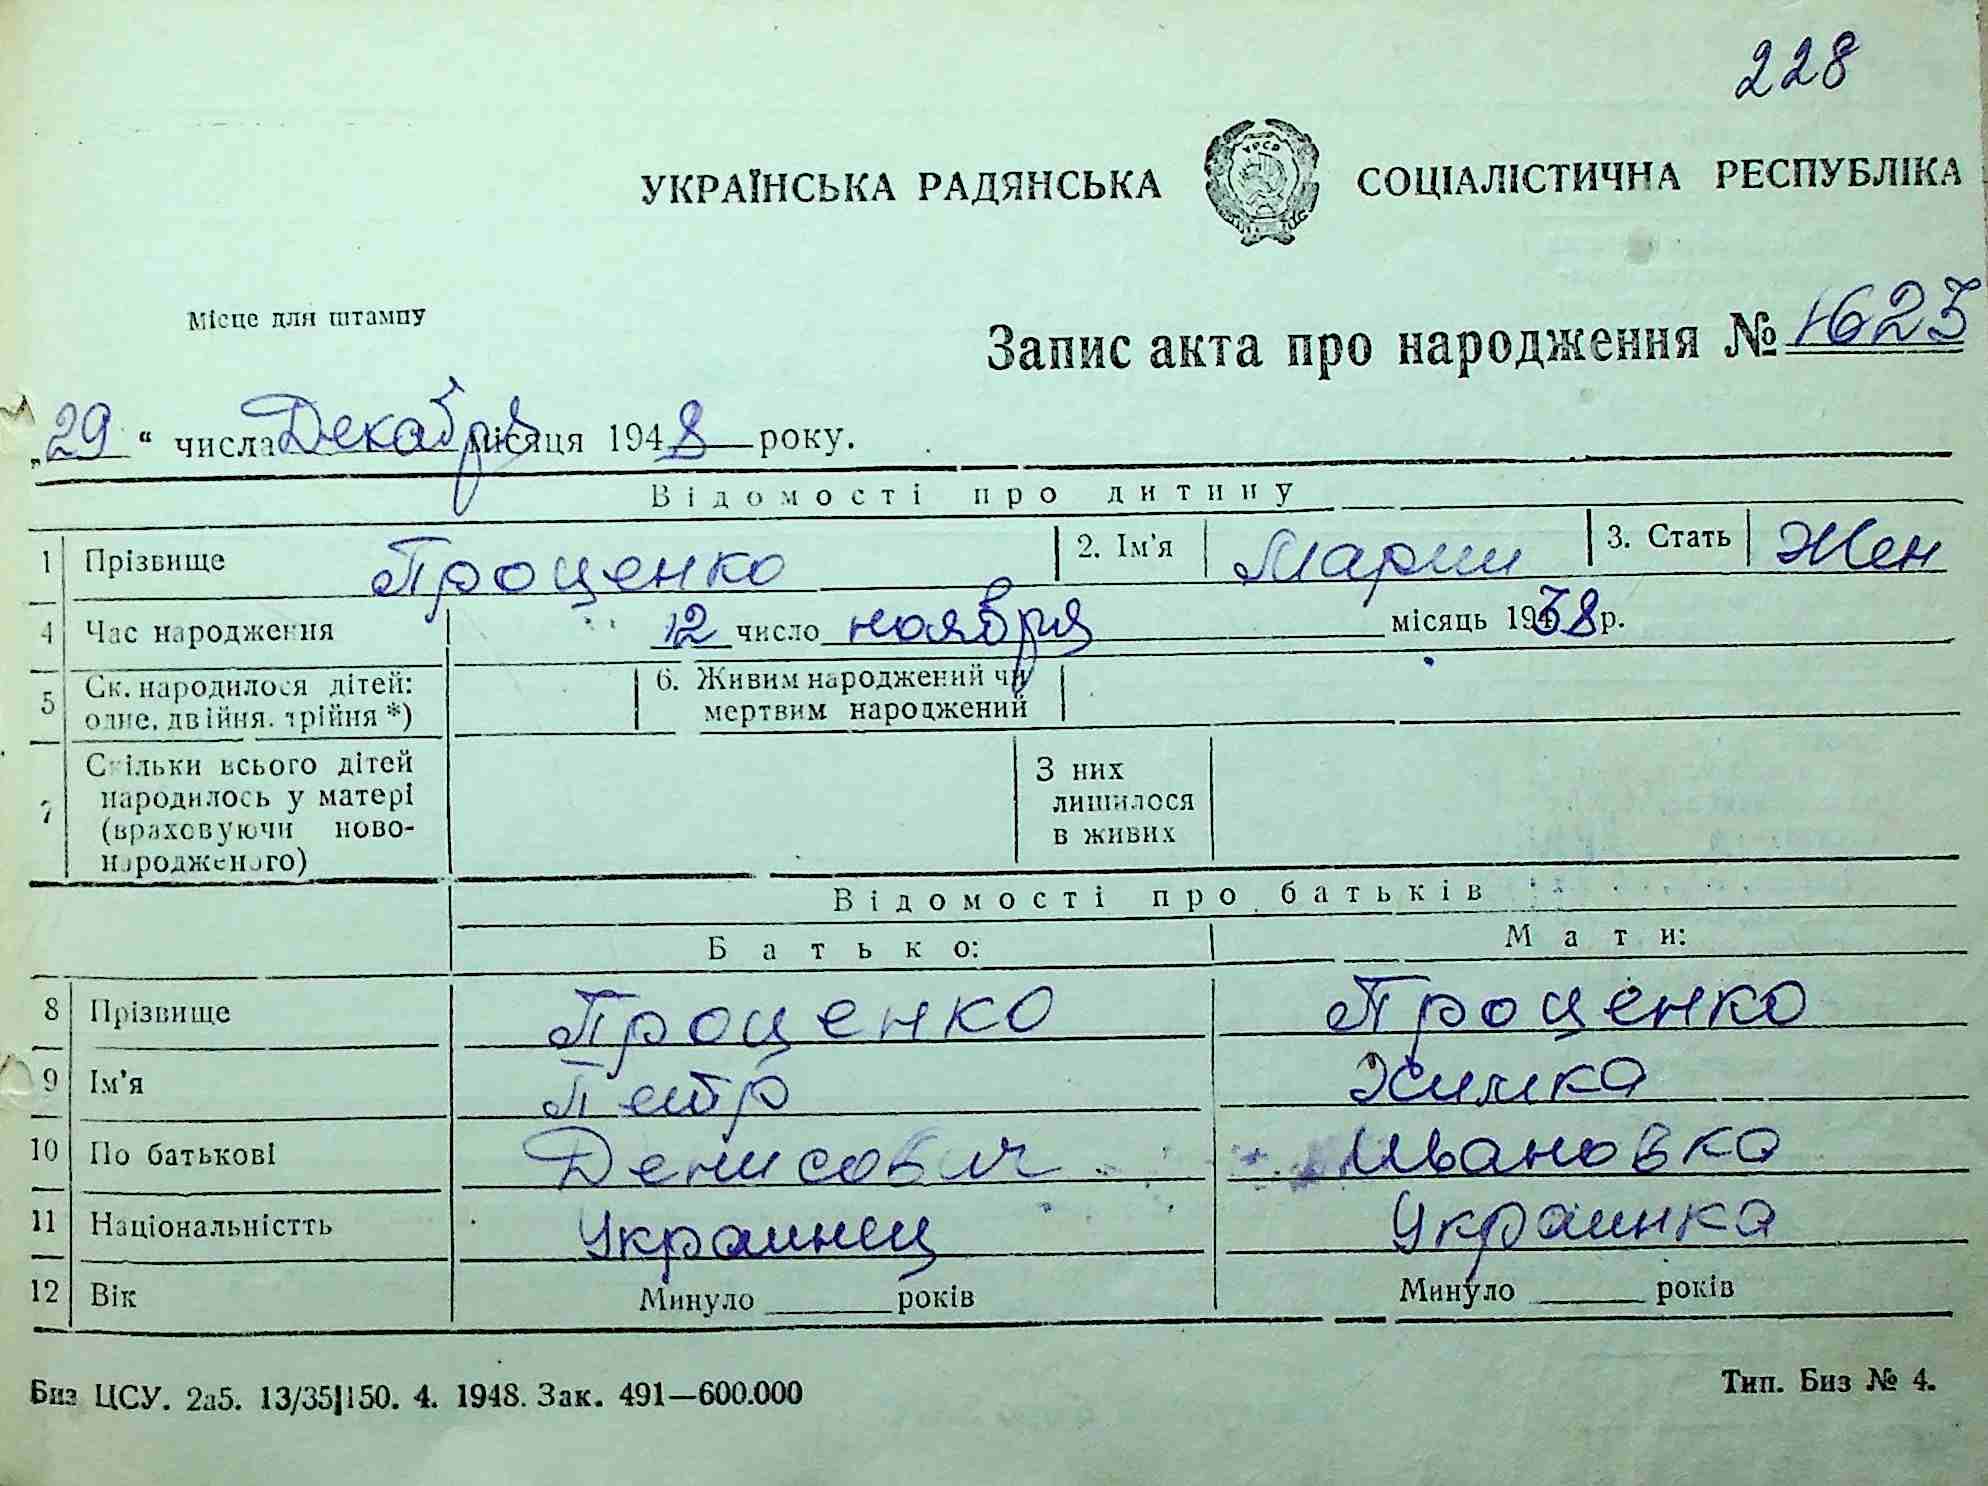 228
УКРАЇНСЬКА РАДЯНСЬКА СОЦІАЛІСТИЧНА РЕСПУБЛІКА
УРСР
Місце для штампу
Запис акта про народження № 1623
„29“ числа Декабря місяця 1948 року.
Відомості про дитину
1 Прізвище Проценко 2. Ім'я Марии 3. Стать Жен
4 Час народження 12 число ноября місяць 1938 р.
5 Ск. народилося дітей: одне, двійня, трійня *) 6. Живим народжений чи мертвим народжений
7 Скільки всього дітей народилось у матері (враховуючи ново-народженого) З них лишилося в живих
Відомості про батьків
Батько: Мати:
8 Прізвище Проценко Проценко
9 Ім'я Петр Химка
10 По батькові Денисович Ивановка
11 Національністть Украинец Украинка
12 Вік Минуло ______ років Минуло ______ років
Биз ЦСУ. 2а5. 13/35|150. 4. 1948. Зак. 491—600.000 Тип. Биз № 4.